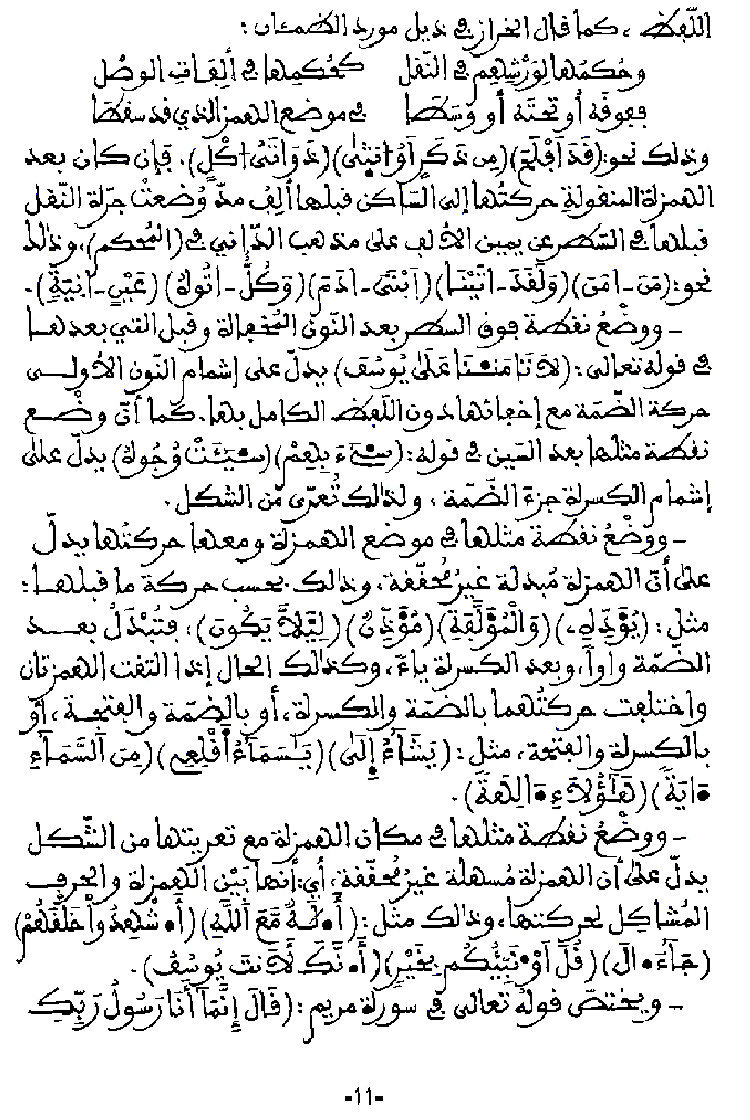 اللّفظ ، كما قال الخراز في ذيل مورد الظمئان :
وحكمها لورشهم في النّقل كحكمها في ألفات الوصل
فوقه أو تحته أو وسطا في موضع الهمز الذي قد سقطا
وذلك نحو: (قَدَ اَفْلَحَ) (مِن ذَكَرٍ اَوُ انثىٰ) (ذَوَاتَىُ اكْلٍ)، فإن كان بعد
الهمزة المنقولة حركتُها إلى السّاكن قبلها ألِف مدّ وُضعتْ جرّة النّقل
قبلها في السّطر عن يمين الألف على مذهب الدّاني في (المُحكم)، وذلك
نحو: (مَنَ ـ امَنَ) (وَلَقَدَ ـ اتَيْنَا) (اَبْنَىَ ـ ادَمَ) (وَكُلٌّ ـ اتُوهُ) (عَيْنٍ ـ انِيَةٍ).
ـ ووضْعُ نقطة فوق السطر بعد النّون المُخفاة وقبل التي بعدها
في قوله تعالى : (لَا تَامَ۬نَّا عَلَىٰ يُوسُفَ) يدلّ على إشمام النّون الأولى
حركة الضّمة مع إخفائها دون اللّفظ الكامل بها. كما أنّ وضْع
نقطة مثلها بعد السّين في قوله : (سِيٓءَ بِهِمْ) (سِيٓئَتْ وُجُوهُ) يدلّ على
إشمام الكسرة جزءَ الضّمة ، ولذلك تُعرّى مّن الشكل.
ـ ووضْعُ نقطة مثلها في موضع الهمزة ومعها حركتُها يدلّ
على أنّ الهمزة مُبدلة غيرُ مُحقّقة، وذلك بحسب حركة ما قبلها :
مثل : (يُوَ۬دِّهِۦ) (وَالْمُوَ۬لَّفَةِ) (مُوَ۬ذِّنٌ) (لِيَ۬لَّا يَكُونَ)، فتُبْدَلُ بعد
الضّمة واواً، وبعد الكسرة ياءً، وكذلك الحال إذا التقت الهمزتان
واختلفت حركتُهما بالضّمة والكسرة، أو بالضّمة والفتحة، أوْ
بالكسرة والفتحة، مثل : (يَشَآءُ اِ۪لَىٰ) (يَٰسَمَآءُ اَ۬قْلِعِى) (مِنَ اَلسَّمَآءِ
•ايَةً) (هَٰٓؤُلَآءِ •الِهَةً).
ـ ووضْعُ نقطة مثلها في مكان الهمزة مع تعريتها من الشّكل
يدلّ على أن الهمزة مُسهلة غيرُ مُحقّقة، أي: أنها بَيْن الهمزة والحرف
المُشاكِل لحركتها، وذلك مثل : (أَ•لَٰهٌ مَّعَ اَللَّهِ) (أَ•شْهِدُواْ خَلْقَهُمْ)
(جَآءَ •الَ) (قُلَ اَوْ•نَبِّئُكُم بِخَيْرٍ) (أَ•نَّكَ لَأَنتَ يُوسُفُ).
ـ ويختصّ قولُه تعالى في سورة مريم : (قَالَ إِنَّمَآ أَنَا رَسُولُ رَبِّكِ
-11-